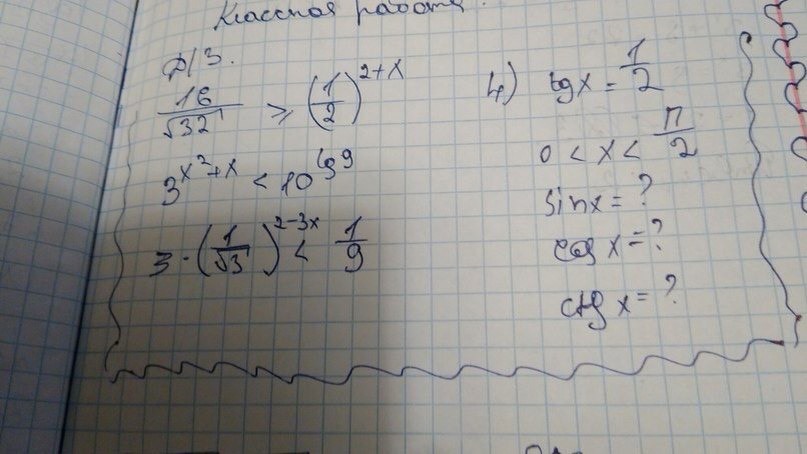 Классная работа.
Д/З.
16/√32 ≥ (1/2)^(2+x)
3^(x²+x) < 10^(lg 9)
3·(1/√3)^(2-3x) < 1/9
4) tgx = 1/2
0 < x < π/2
sinx = ?
cos x = ?
ctg x = ?